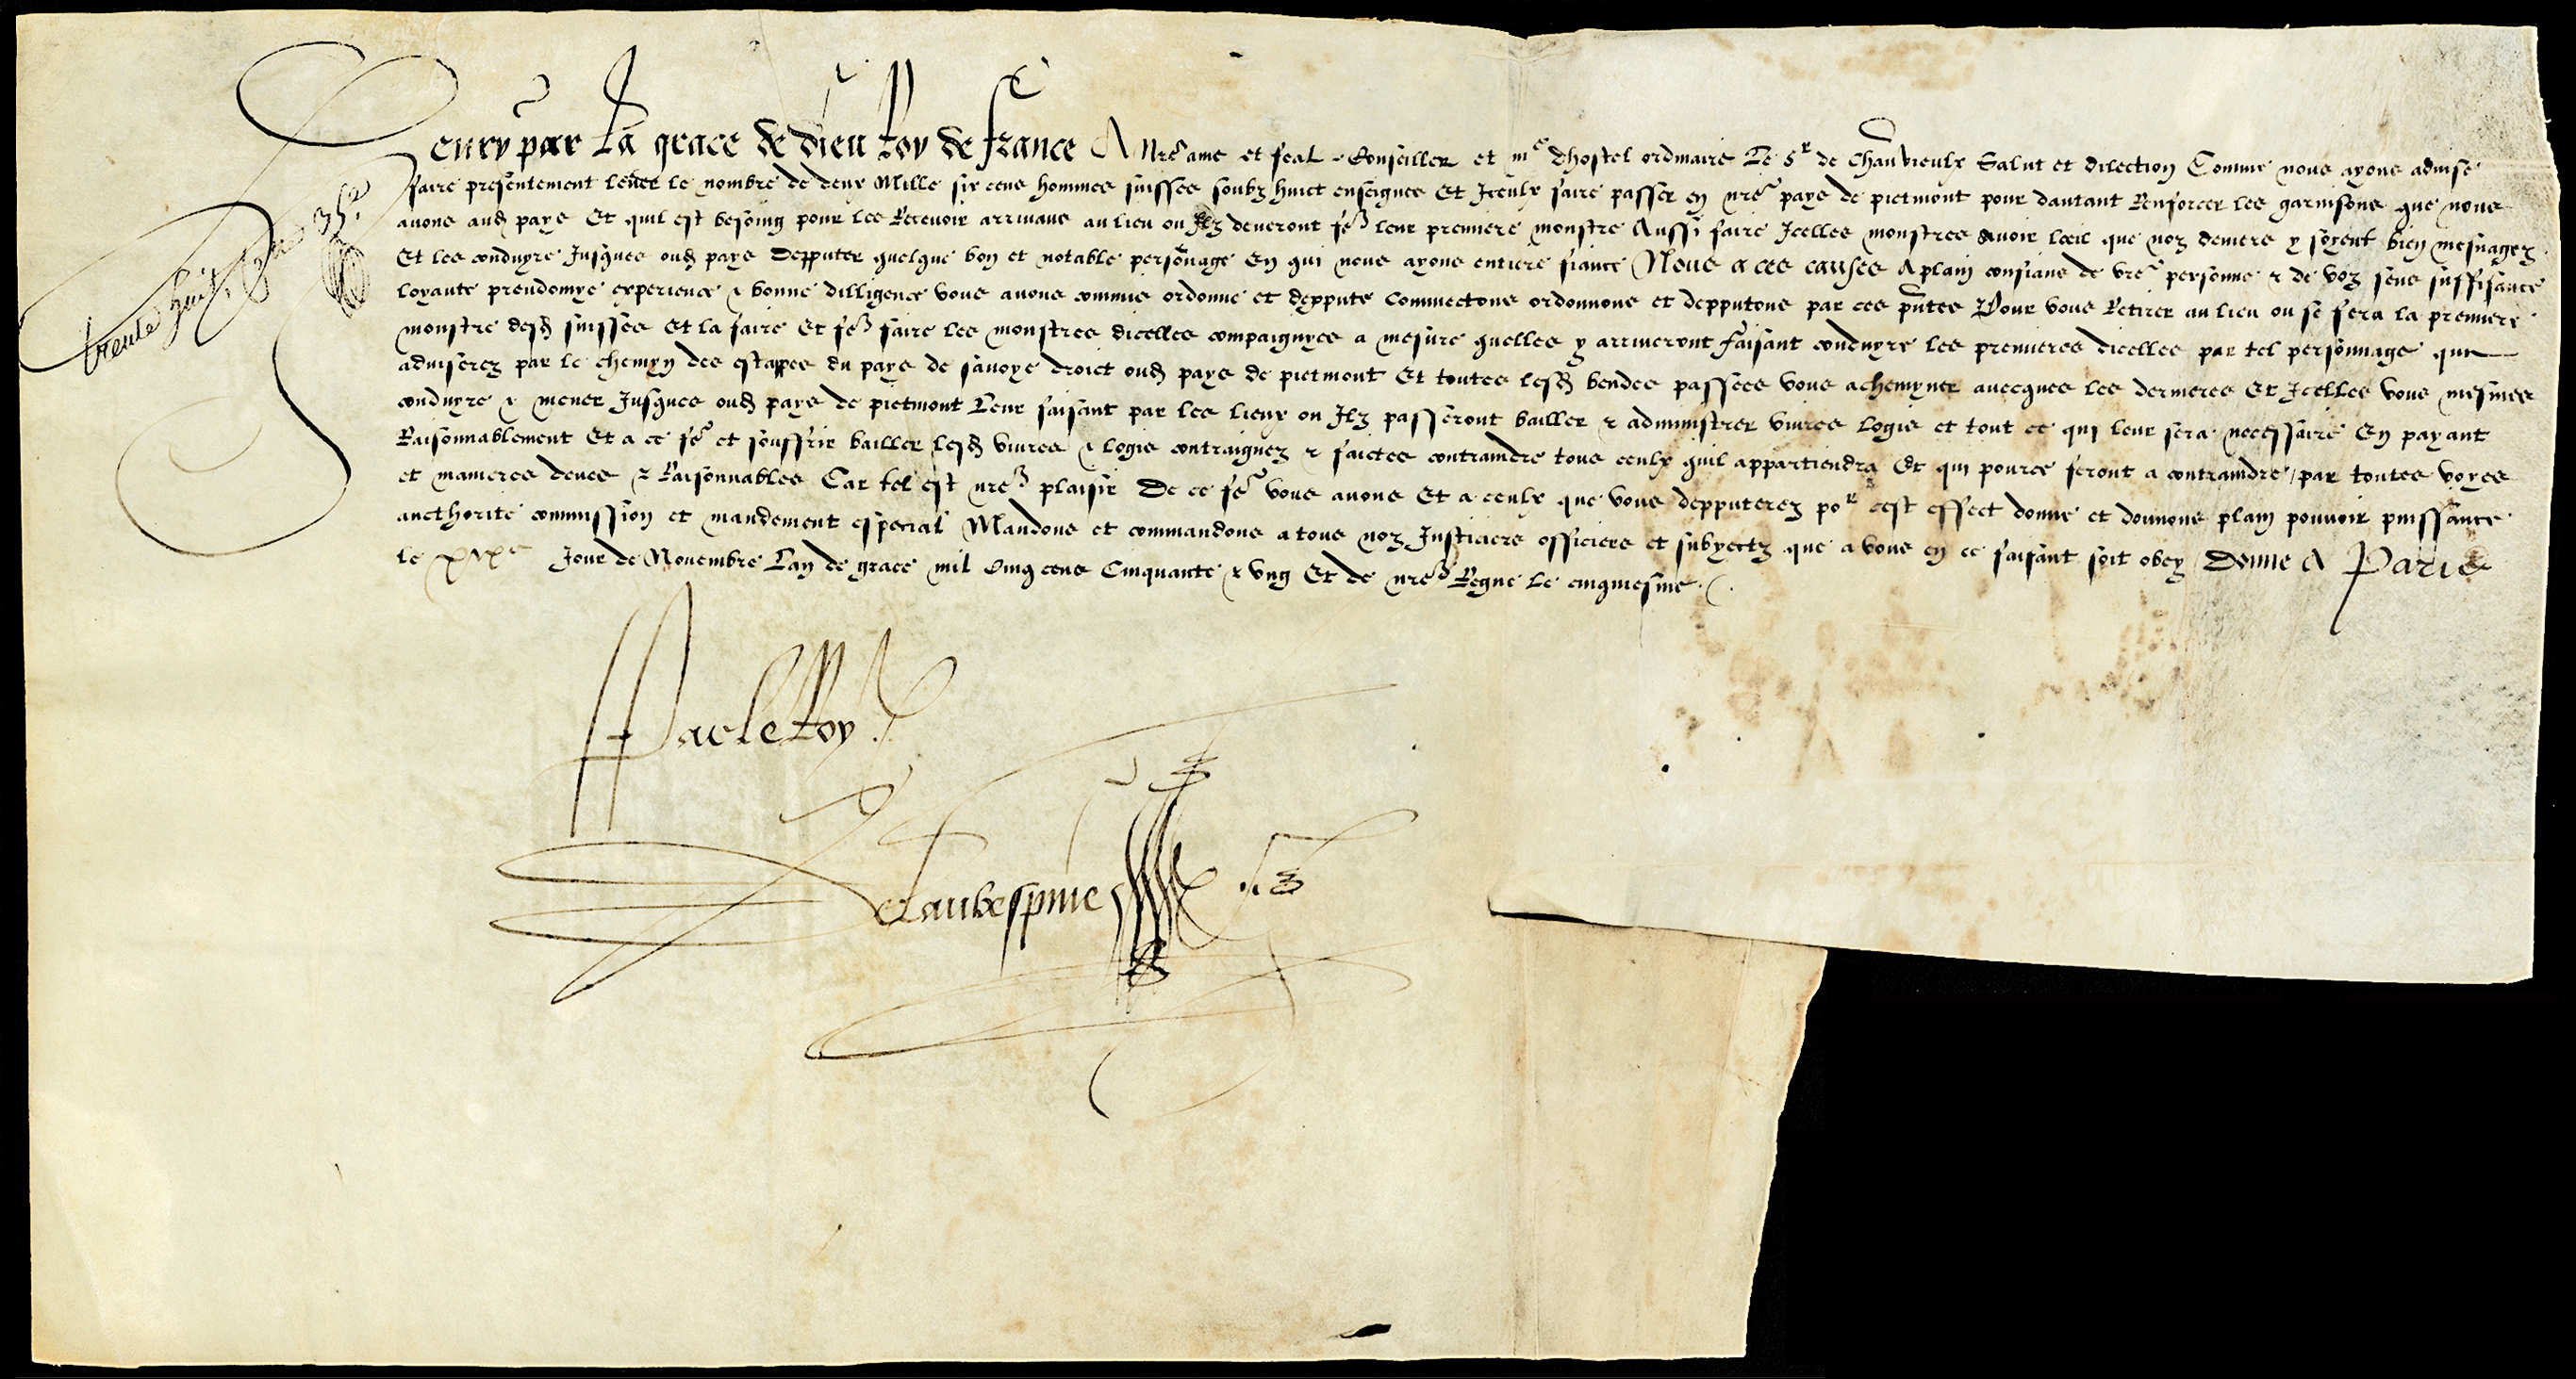 Henry par La grace de Dieu Roy de france A Nre ame et feal Conseiller et me dhostel ordinaire Le Sr de Chanvieulx Salut et dilection Comme nous ayons advise
faire presentement lever le nombre de deux Mille six cens hommes suisses soubz huict enseignes Et Iceulx faire passer en nre pays de pietmont pour dautant Renforcer les garnisons que nous
avons aud pays Et quil est besoing pour les Recevoir arrivans au lieu ou Ilz deveront fe leur premiere monstre Aussi faire Icelles monstres avoir loeil que noz deniers y soyent bien mesnagez
Et les conduyre Jusques oud pays depputer quelque bon et notable personage en qui nous ayons entiere fiance Nous a ces causes A plain confians de vre personne & de voz sens suffisance
loyaute preudomye experience & bonne dilligence vous avons commis ordonne et deppute commectons ordonnons et depputons par ces pntes Pour vous Retirer au lieu ou se fera la premiere
monstre desd suisses Et la faire Et fe faire les monstres dicelles compaignyes a mesure quelles y arriveront faisant conduyre les premieres dicelles par tel personnage que
adviserez par le chemyn des estappes du pays de savoye droict oud pays de pietmont Et toutes lesd bendes passees vous achemyner avecques les dernieres Et Icelles vous mesmes
conduyre & mener Jusques oud pays de pietmont Leur faisant par les lieux ou Ilz passeront bailler & administrer vivres logis et tout ce qui leur sera necessaire En payant
Raisonnablement Et a ce fe et souffrir bailler lesd vivres & logis contraignez & faictes contraindre tous ceulx quil appartiendra Et qui pource seront a contraindre / par toutes voyes
et manieres deues & Raisonnables Car tel est nre plaisir De ce fe vous avons Et a ceulx que vous depputerez por cest effect donne et donnons plain pouvoir puissance
aucthorite commission et mandement especial Mandons et commandons a tous noz Justiciers officiers et subyectz que a vous en ce faisant soit obey Donne A Paris
le Jour de Novembre Lan de grace mil cinq cens Cinquante & ung Et de nre Regne le cinqiesme
trente huit
38
Par le Roy
Delaubespine